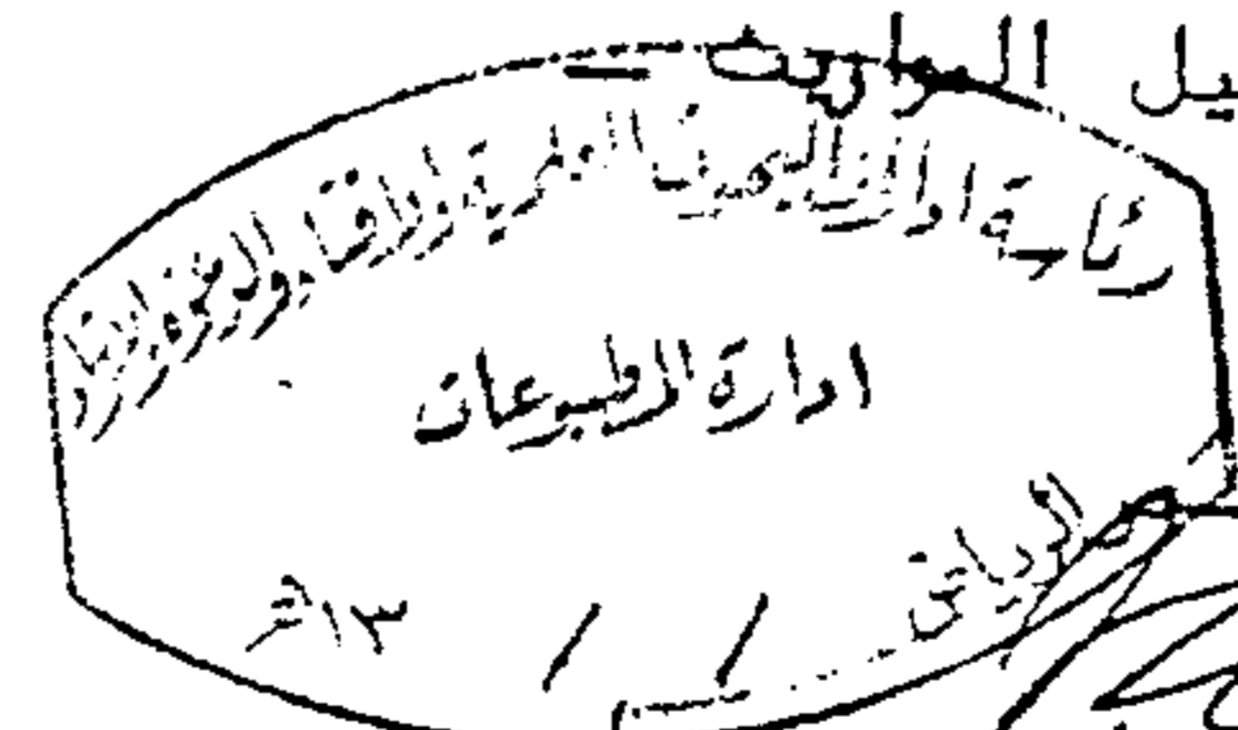 يل الموارث
رئاسة ادارات البحوث العلمية والافتاء والدعوة والارشاد
ادارة المطبوعات
الرياض
/ / ١٣هـ